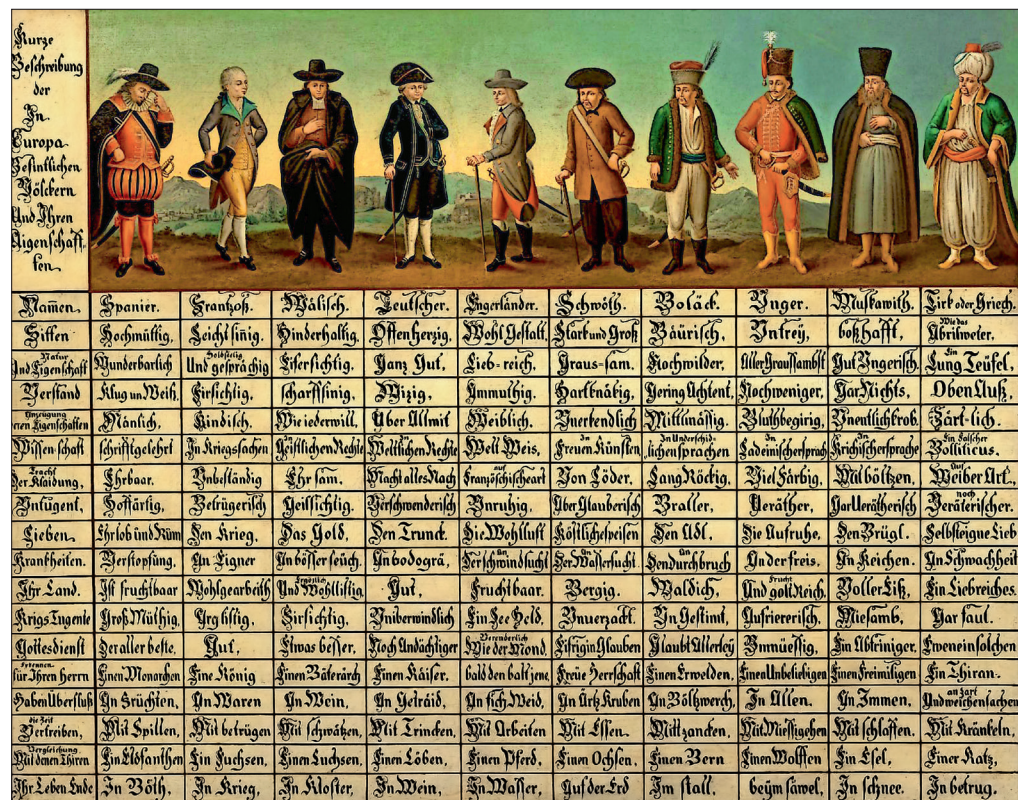 Kurze
Beschreibung
der
In
Europa
Befintlichen
Völckern
Und Ihren
Aigenschaff,
ten
Namen. Spanier. Frantzoß. Wälisch. Teutscher. Engerländer. Schwöth. Boläck. Unger. Muskawith. Tirk oder Griech.
Sitten Hochmüttig, Leichtsinig, Hinderhaltig, Offenherzig, Wohl Gestalt, Stark und Groß Bäurisch, Untrey, boßhafft, Wie das Abrilweter.
Natur Und Eigenschaft Wunderbarlich Holdseelig Und gesprächig Eifersichtig, Ganz Gut, Lieb-reich, Graus-sam, Nochwilder, Aller Graussambst Gut Ungerisch, Ein Lung Teüfel,
Verstand Klug un Weiß, Firsichtig, scharffsinig, Wizig, Ammuthig, Hartknätig, Gering Achtent, Nochweniger, Gar Nichts, Oben Auß,
Anzeügung deren Eigenschaften Mänlich, Kindisch, Wie iederwill, Über Allmit Weiblich, Unerkendlich Mittlmässig, Bluthbegirig, Unentlichkrob, Zärt-lich.
Wissenschaft schriftgelehrt In Kriegssachen In Geistlichen Rechte In Weltlichen Rechte Welt Weis, In Freuen Künsten, In Underschid-lichen sprachen In Ladeinischersprach In Krichischersprache Ein Falscher Bolliticus.
Tracht Der Klaidung, Ehrbaar. Unbeständig Ehrsam, Macht alles Nach auf Französchische art Von Löder, Lang Röckig, Viel Färbig, Mit böltzen, Auf Weiber Art.,
Untugent, Hoffärtig, Betrügerisch Geilsichtig, Verschwenderisch Unruhig, Über Glauberisch Braller, Veräther, Gar Verätherisch noch Veräterischer.
Lieben Ehrlob und Rüm Den Krieg, Das Gold, Den Trunck, Die Wohllust Köstliche speisen Den Adl, Die Aufruhe, Den Brügl, Selbsteigne Lieb
Krankheiten. Verstopfung, An Eigner An bösser seüch, An bodogrä, An Der schwindsucht An Der Wassersucht An Den durchbruch An der freis, An Keichen, An Schwachheit
Ihr Land. Ist fruchtbaar Wohlgearbeith Ergözlich Und Wohllistig Gut, Fruchtbaar. Bergig. Waldich, Und Frucht gold Reich. Voller Eiß, Ein Liebreiches.
Krigs Tugente Groß Müthig, Arglistig, Firsichtig, Uniberwindlich Ein See Held, Unverzackt. Un Gestimt, Aufriererisch. Miesamb, Gar faul.
Gottesdienst Der aller beste, Gut, Etwas besser, Noch Andächtiger Verenderlich Wie der Mond, Eifrig in Glauben Glaubt Allerley Unmüessig, Ein Abtriniger, Eweneinsolchen
Erkennen für Ihren Herrn Einen Monarchen Eine König Einen Bäterärch Einen Käiser, bald den balt jene, Freüe Herrschaft Einen Erwelden, Einen Unbeliebigen Einen Freimiligen Ein Thiran.
Haben Überfluß An Früchten, An Waren An Wein, An Geträid, An fich Weid, An Ärtz Kruben An Böltzwerch, In Allen, An Immen, an zart Und weichen sachen
die Zeit Vertreiben, Mit Spillen, Mit betrügen Mit schwätzen, Mit Trincken, Mit Arbeiten Mit Essen, Mit zancken, Mit Miessigehen Mit schlaffen, Mit Kränkeln,
Vergleichung Mit denen Thiren Ein Elofanthen Ein Fuchsen, Einen Luchsen, Einen Löben, Einen Pferd, Einen Ochsen, Einen Bern Einen Wolffen Ein Esel, Einer Katz,
Ihr Leben Ende In Böth, In Krieg, In Kloster, In Wein, In Wasser, Auf der Erd Im stall, beym säwel, In schnee, In betrug.